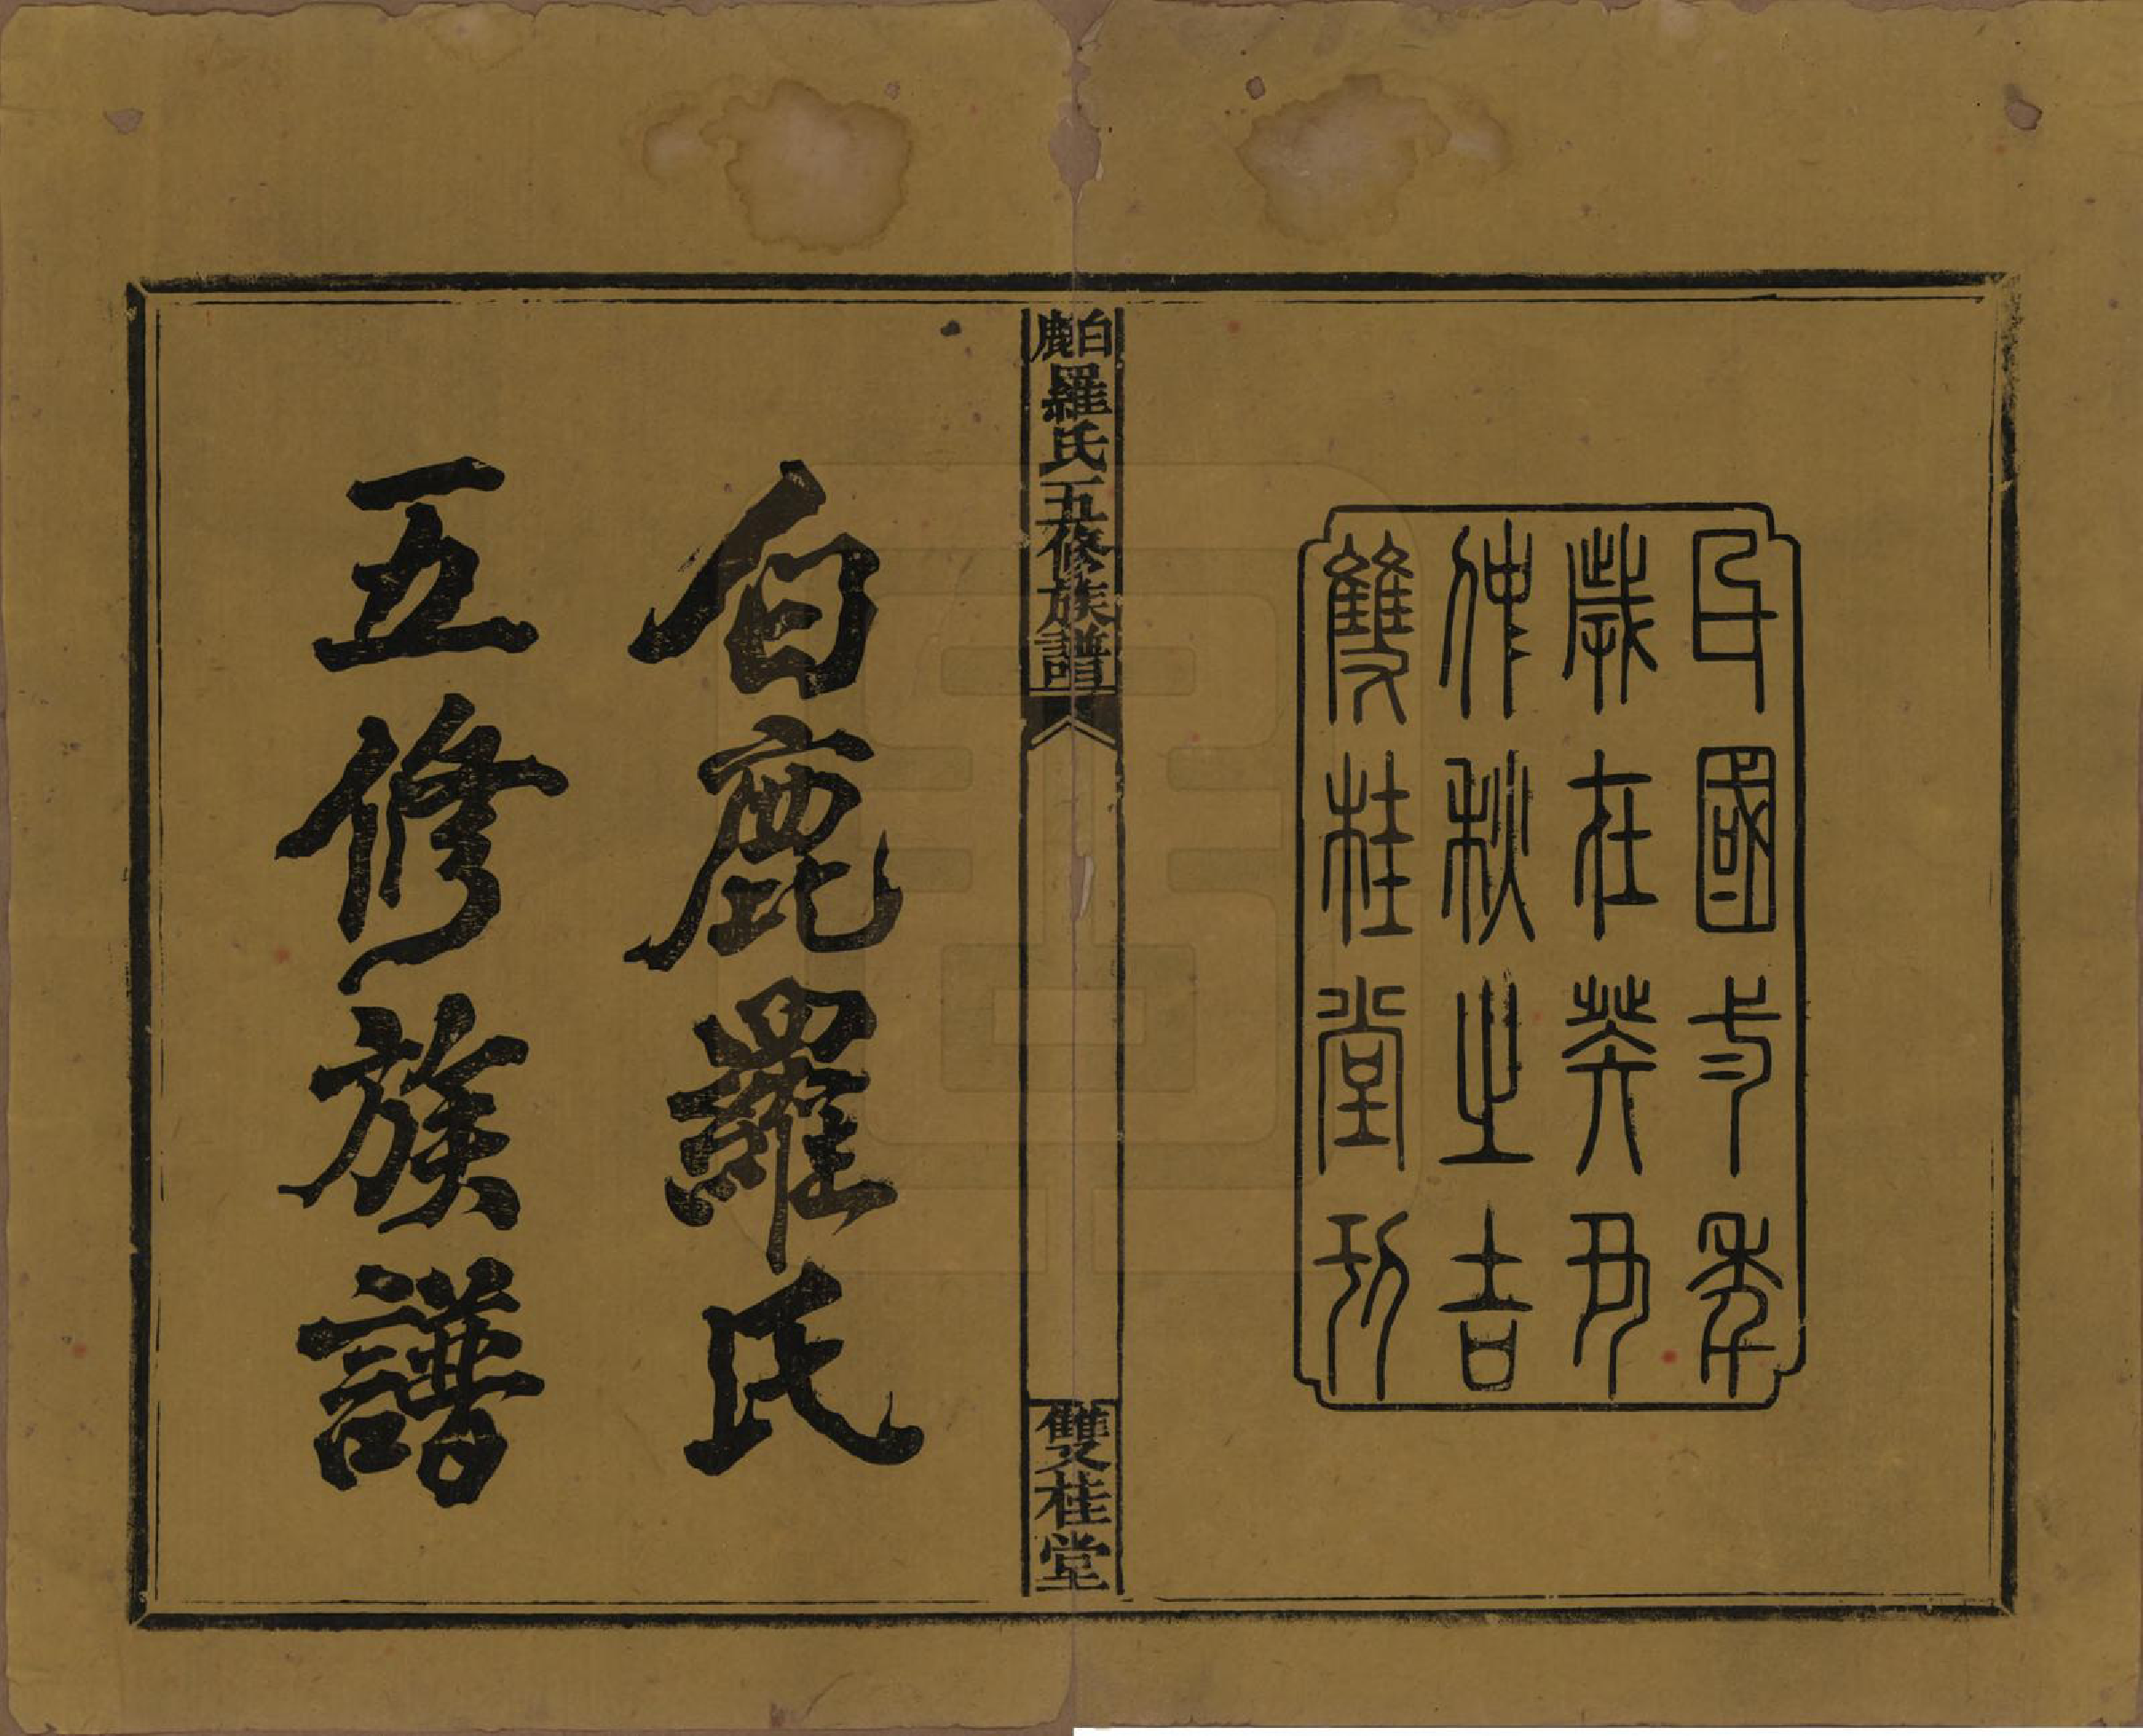 民國弍年
歲在癸丑
仲秋之吉
雙桂堂刊
白鹿羅氏五修族譜
雙桂堂
白鹿羅氏
五修族譜